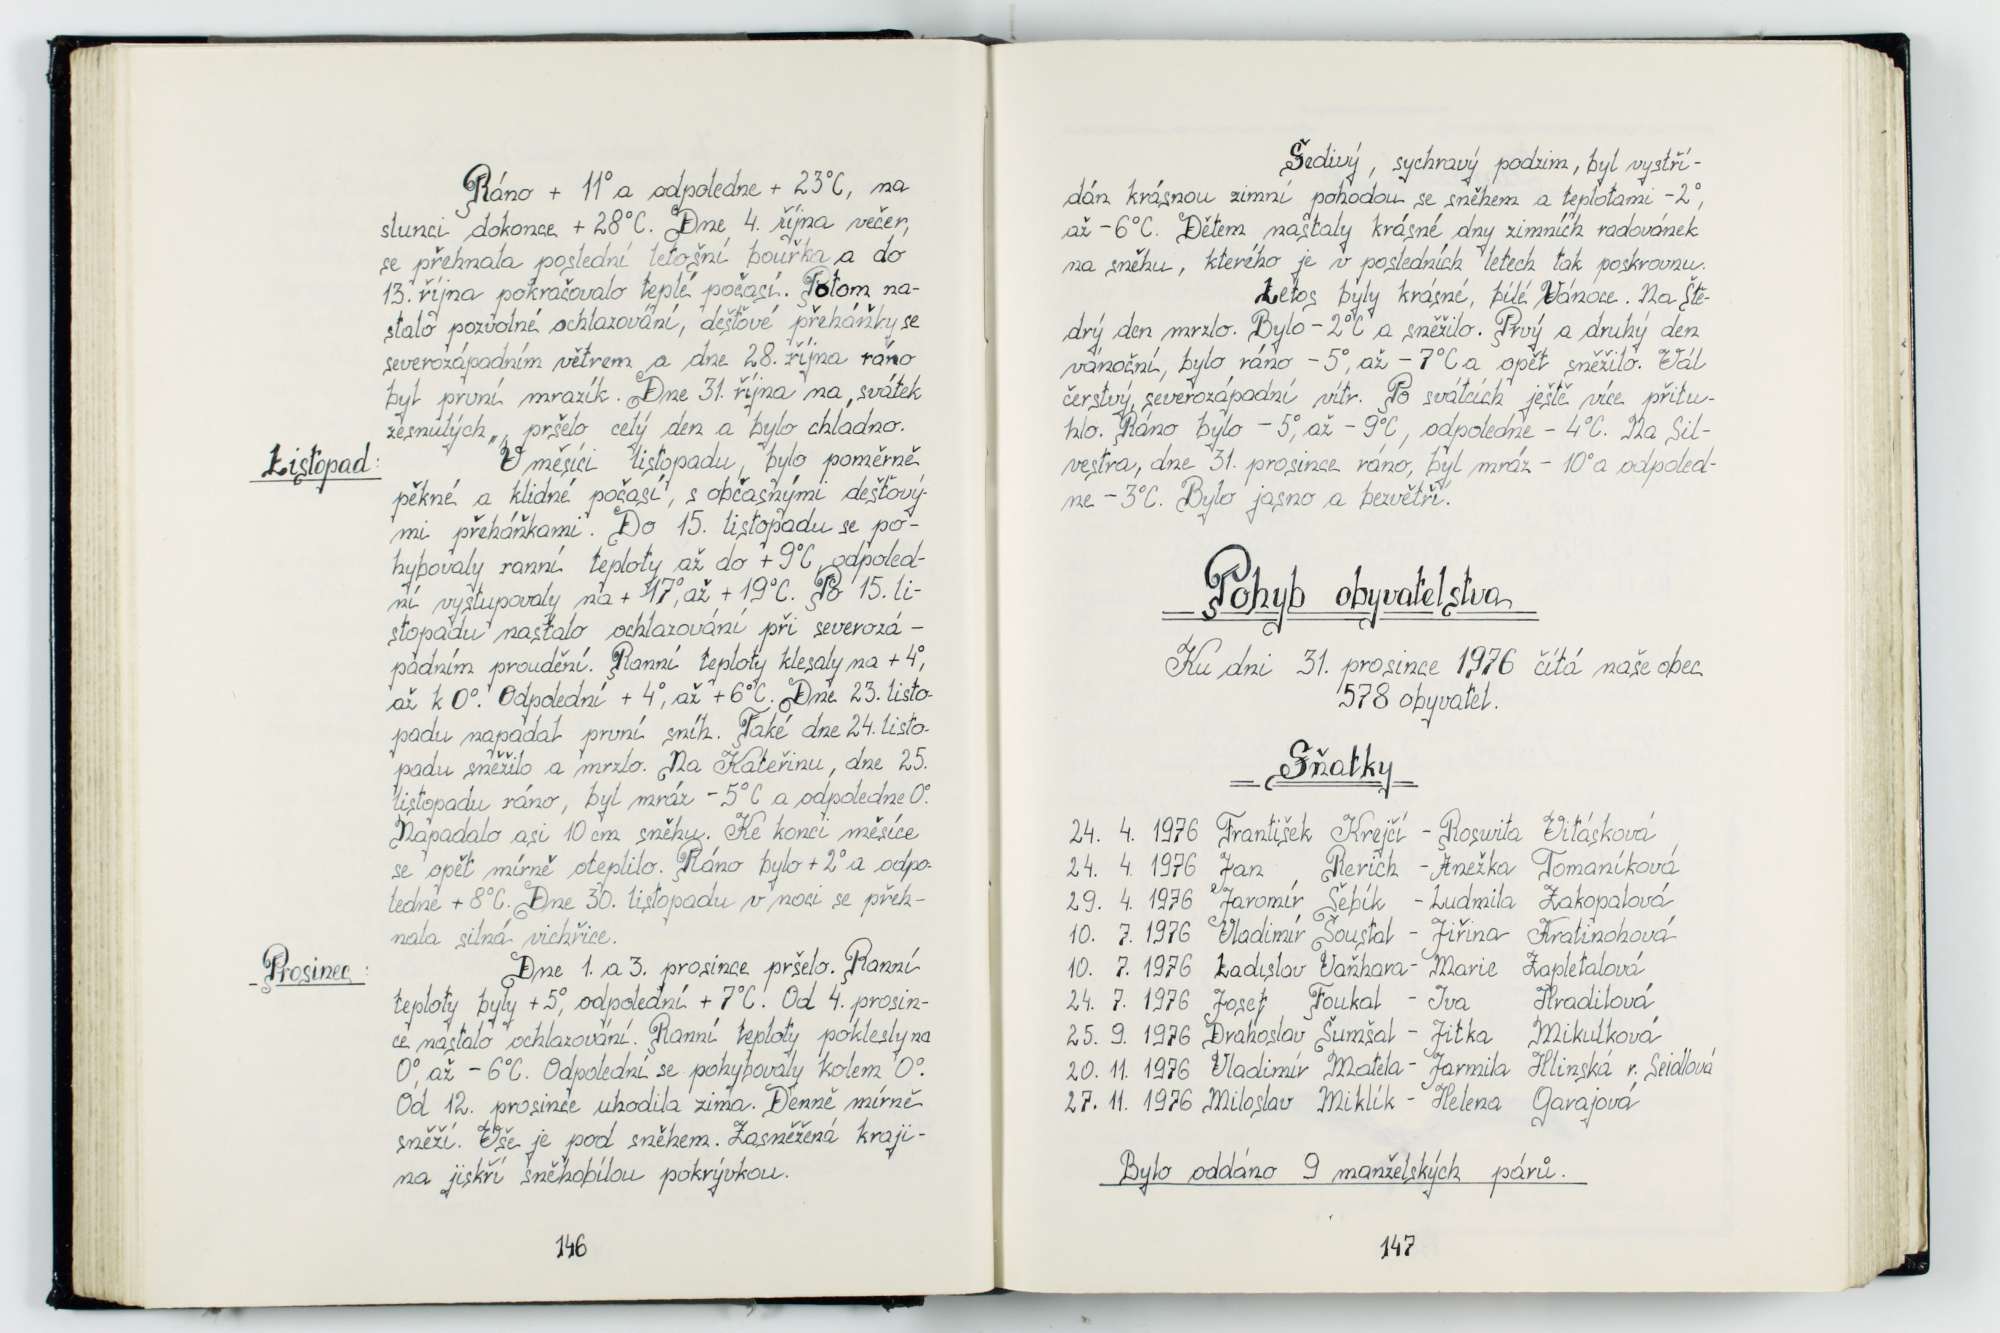 Ráno + 11° a odpoledne + 23°C, na
slunci dokonce + 28°C. Dne 4. října večer,
se přehnala poslední letošní bouřka a do
13. října pokračovalo teplé počasí. Potom na-
stalo pozvolné ochlazování, dešťové přeháňky se
severozápadním větrem a dne 28. října ráno
byl první mrazík. Dne 31. října na „svátek
zesnulých„, pršelo celý den a bylo chladno.
Listopad:
V měsíci listopadu, bylo poměrně
pěkné a klidné počasí, s občasnými dešťový-
mi přeháňkami. Do 15. listopadu se po-
hybovaly ranní teploty až do + 9°C, odpoled-
ní vystupovaly na + 17°, až + 19°C. Po 15. li-
stopadu nastalo ochlazování při severozá-
padním proudění. Ranní teploty klesaly na + 4°,
až k 0°. Odpolední + 4°, až + 6°C. Dne 23. listo-
padu napadal první sníh. Také dne 24. listo-
padu sněžilo a mrzlo. Na Kateřinu, dne 25.
listopadu ráno, byl mráz - 5°C a odpoledne 0°.
Napadalo asi 10 cm sněhu. Ke konci měsíce
se opět mírně oteplilo. Ráno bylo + 2° a odpo-
ledne + 8°C. Dne 30. listopadu v noci se přeh-
nala silná vichřice.
Prosinec:
Dne 1. a 3. prosince pršelo. Ranní
teploty byly + 5°, odpolední + 7°C. Od 4. prosin-
ce nastalo ochlazování. Ranní teploty poklesly na
0°, až - 6°C. Odpolední se pohybovaly kolem 0°.
Od 12. prosince uhodila zima. Denně mírně
sněží. Vše je pod sněhem. Zasněžená kraji-
na jiskří sněhobílou pokrývkou.
146
Šedivý, sychravý podzim, byl vystří-
dán krásnou zimní pohodou se sněhem a teplotami - 2°,
až - 6°C. Dětem nastaly krásné dny zimních radovánek
na sněhu, kterého je v posledních létech tak poskrovnu.
Letos byly krásné, bílé Vánoce. Na Ště-
drý den mrzlo. Bylo - 2°C a sněžilo. Prvý a druhý den
vánoční, bylo ráno - 5°, až - 7°C a opět sněžilo. Vál
čerstvý, severozápadní vítr. Po svátcích ještě více přitu-
hlo. Ráno bylo - 5°, až - 9°C, odpoledne - 4°C. Na Sil-
vestra, dne 31. prosince ráno, byl mráz - 10° a odpoled-
ne - 3°C. Bylo jasno a bezvětří.
Pohyb obyvatelstva
Ku dni 31. prosince 1976 čítá naše obec
578 obyvatel.
Sňatky
24. 4. 1976 František Krejčí - Roswita Vitásková
24. 4. 1976 Jan Rerich - Anežka Tomaníková
29. 4. 1976 Jaromír Šebík - Ludmila Zakopalová
10. 7. 1976 Vladimír Šoustal - Jiřina Kratinohová
10. 7. 1976 Ladislav Vaňhara - Marie Zapletalová
24. 7. 1976 Josef Foukal - Iva Hradilová
25. 9. 1976 Drahoslav Šumšal - Jitka Mikulková
20. 11. 1976 Vladimír Matela - Jarmila Hlinská r. Seidlová
27. 11. 1976 Miloslav Miklík - Helena Garajová
Bylo oddáno 9 manželských párů.
147